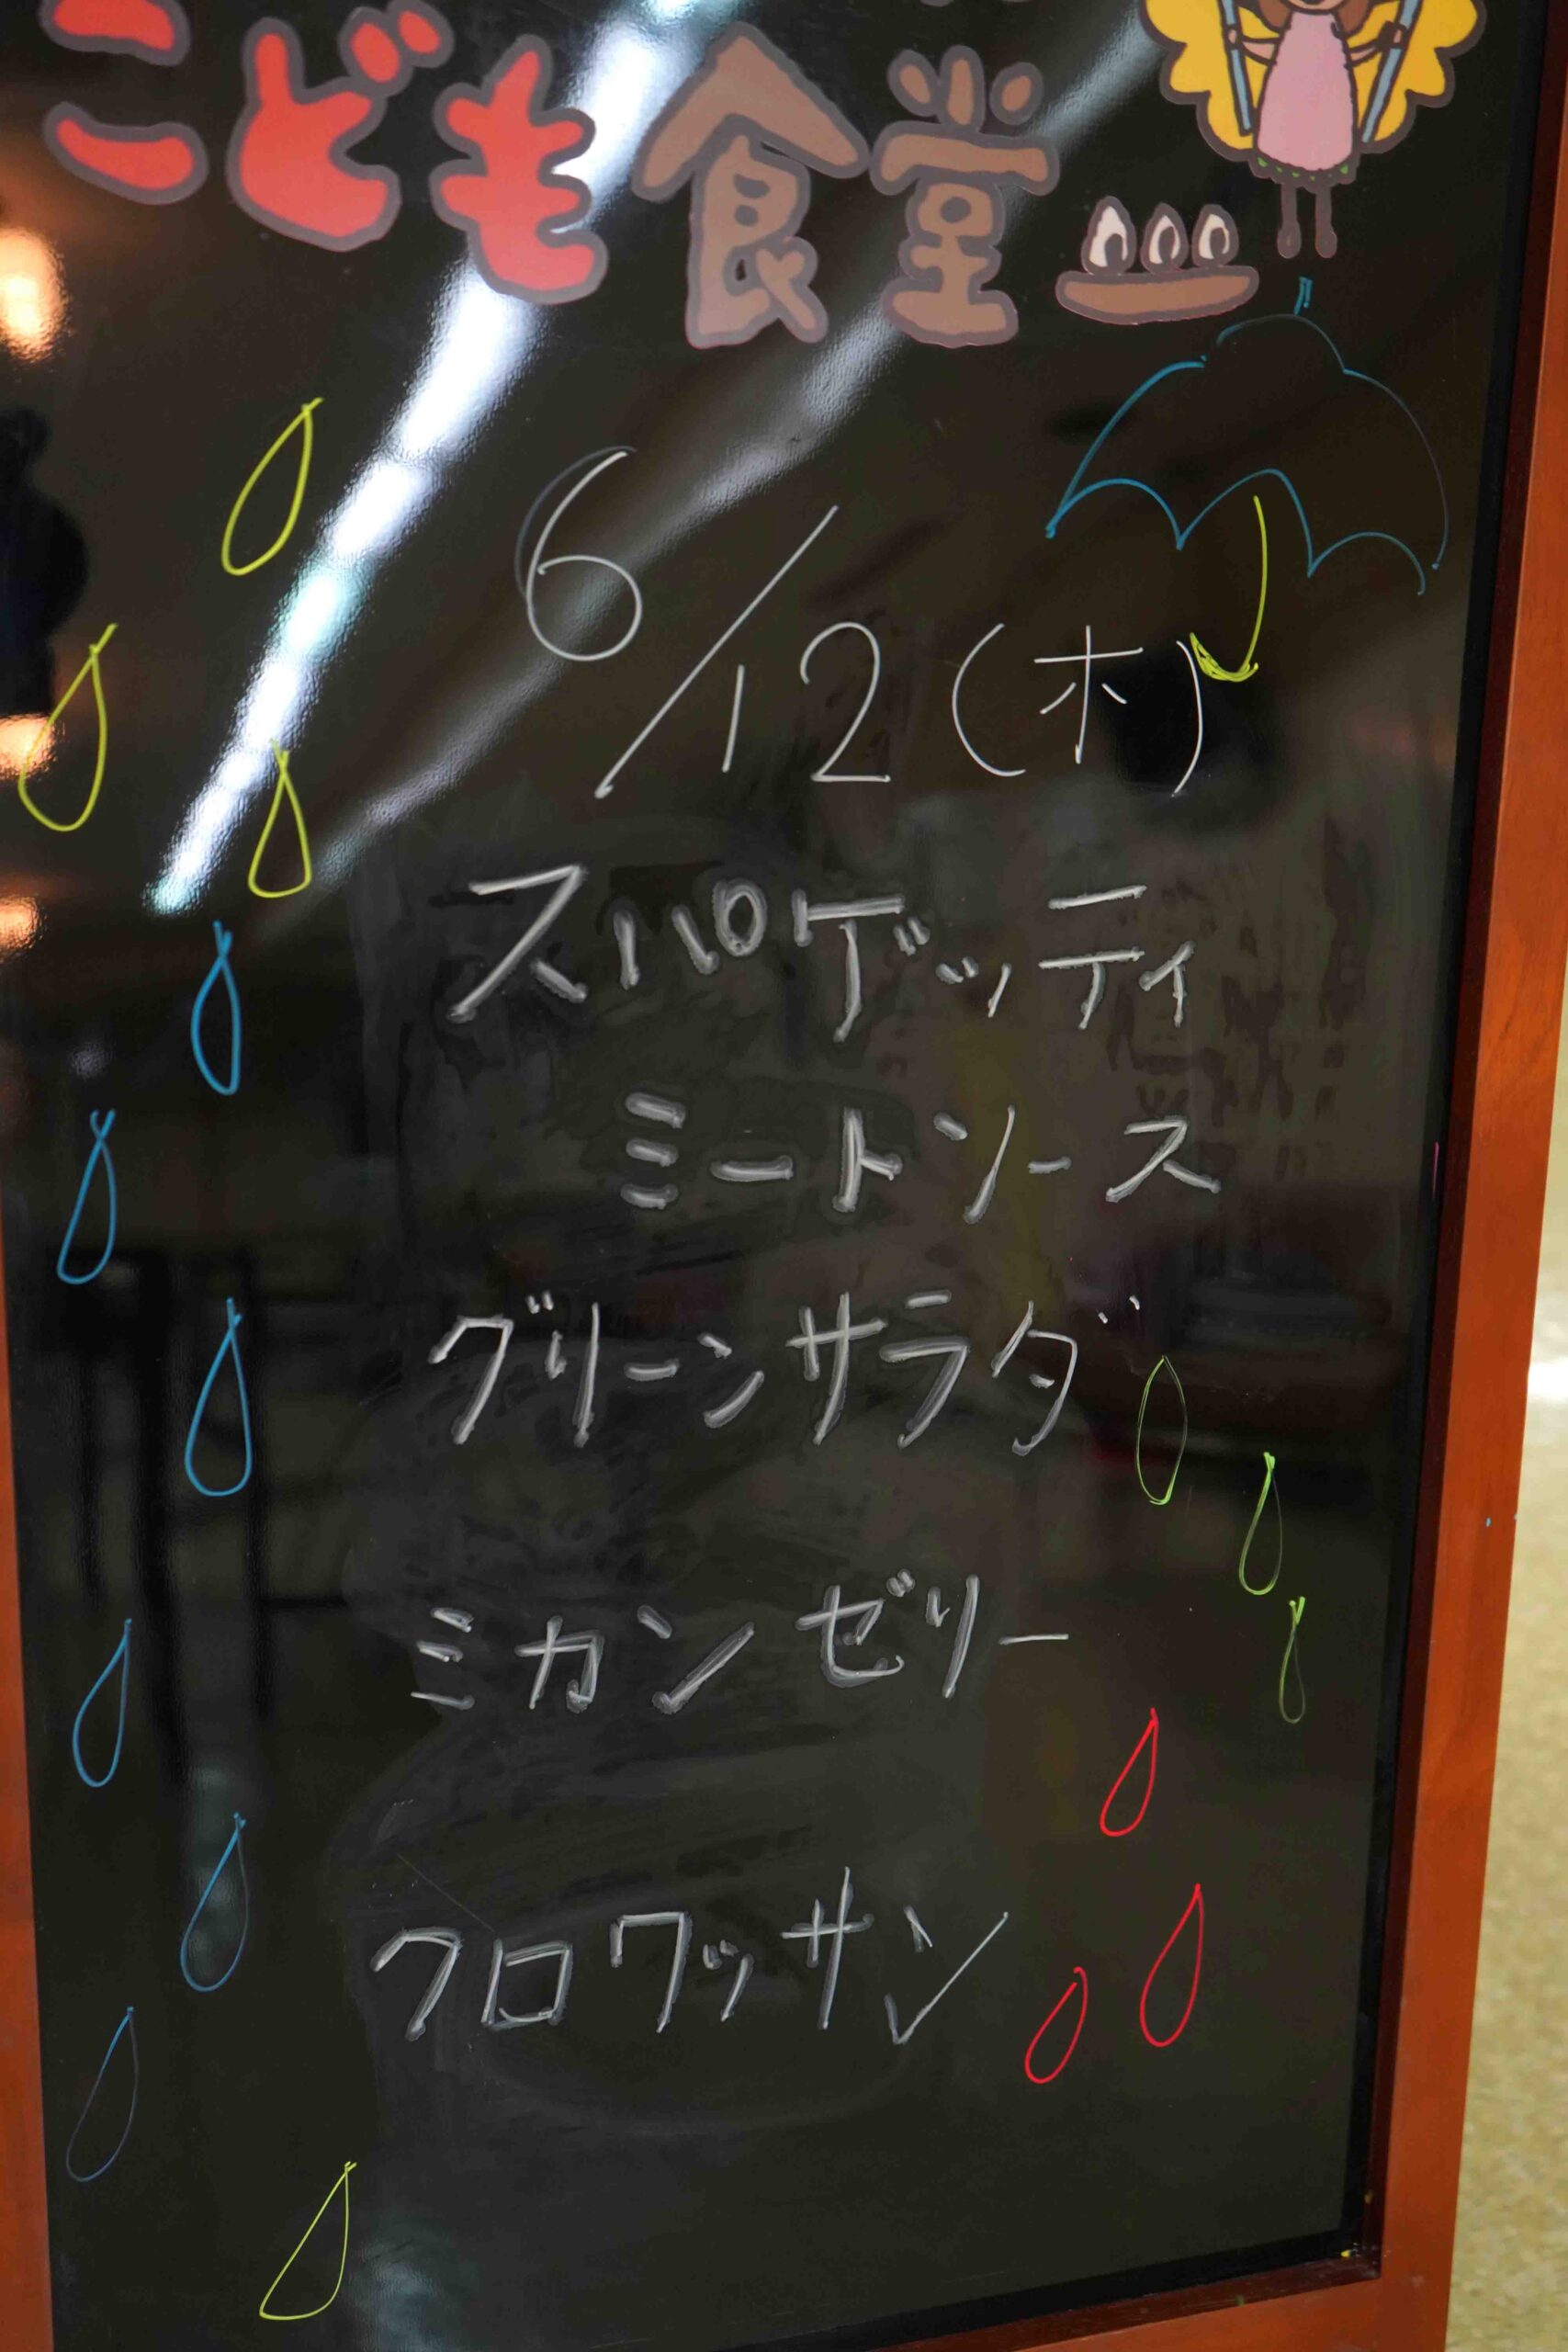 こども食堂
6/12(木)
スパゲッティ
ミートソース
グリーンサラダ
ミカンゼリー
クロワッサン